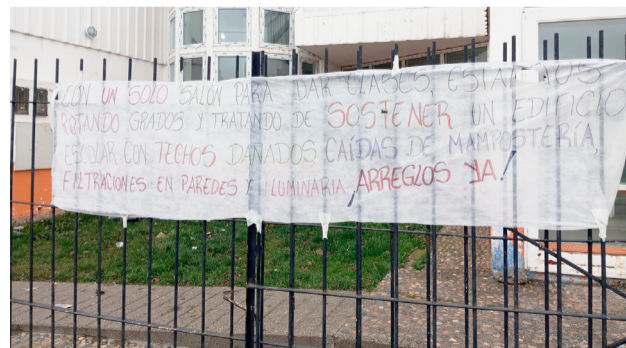 CON UN SOLO SALÓN PARA DAR CLASES, ESTAMOS
ROTANDO GRADOS Y TRATANDO DE SOSTENER UN EDIFICIO
ESCOLAR CON TECHOS DAÑADOS CAÍDAS DE MAMPOSTERÍA,
FILTRACIONES EN PAREDES E LUMINARIA ¡ARREGLOS YA!